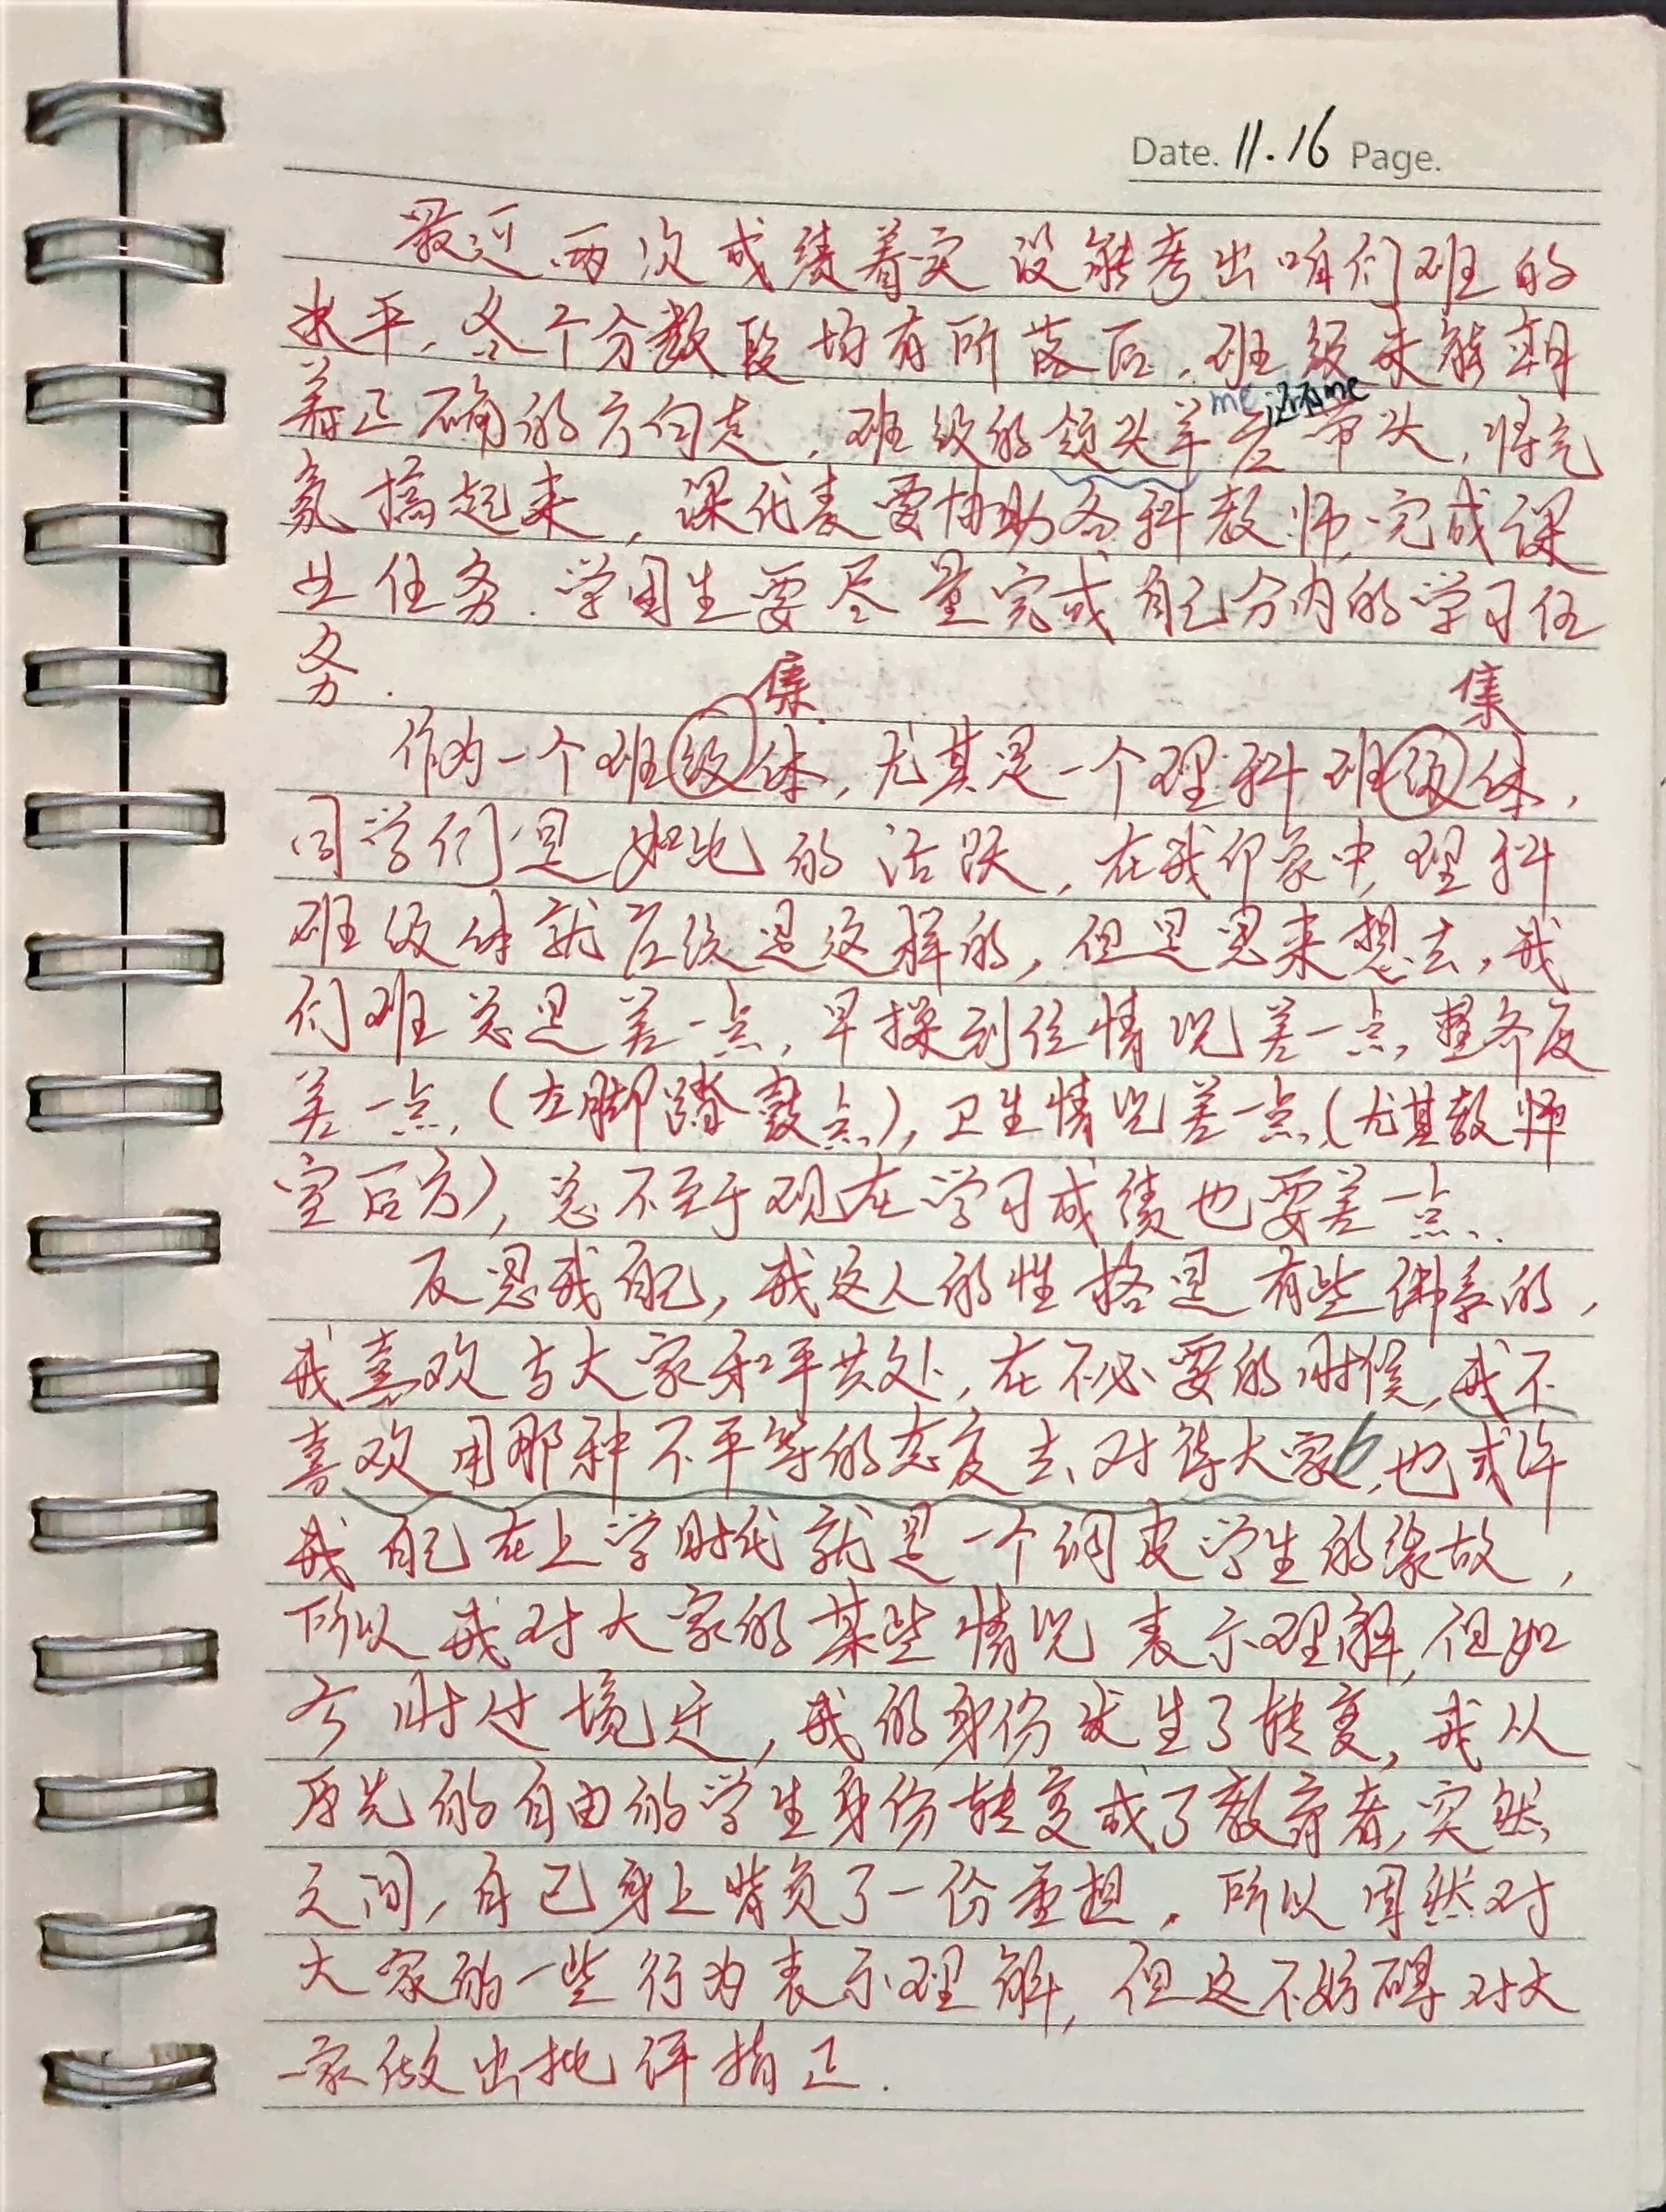 Date. 11.16 Page.
最近两次成绩着实没能考出咱们班的
水平，各个分数段均有所落后，班级未能朝
me 还不me
着正确的方向走，班级的领头羊应带头，将气
氛搞起来，课代表要协助各科教师完成课
业任务．学困生要尽量完成自己分内的学习任
务．
集 集
作为一个班级体，尤其是一个理科班级体，
同学们是如此的活跃，在我印象中，理科
班级体就应该是这样的，但是思来想去，我
们班总是差一点，早操到位情况差一点，整齐度
差一点，（左脚踏鼓点），卫生情况差一点（尤其教师
室后方），总不至于现在学习成绩也要差一点．
反思我自己，我这人的性格是有些佛系的，
我喜欢与大家和平共处，在不必要的时候，我不
喜欢用那种不平等的态度去对待大家，也或许
我自己在上学时代就是一个调皮学生的缘故，
所以我对大家的某些情况表示理解，但如
今时过境迁，我的身份发生了转变，我从
原先的自由的学生身份转变成了教育者，突然
之间，自己身上背负了一份重担，所以固然对
大家的一些行为表示理解，但这不妨碍对大
家做出批评指正．